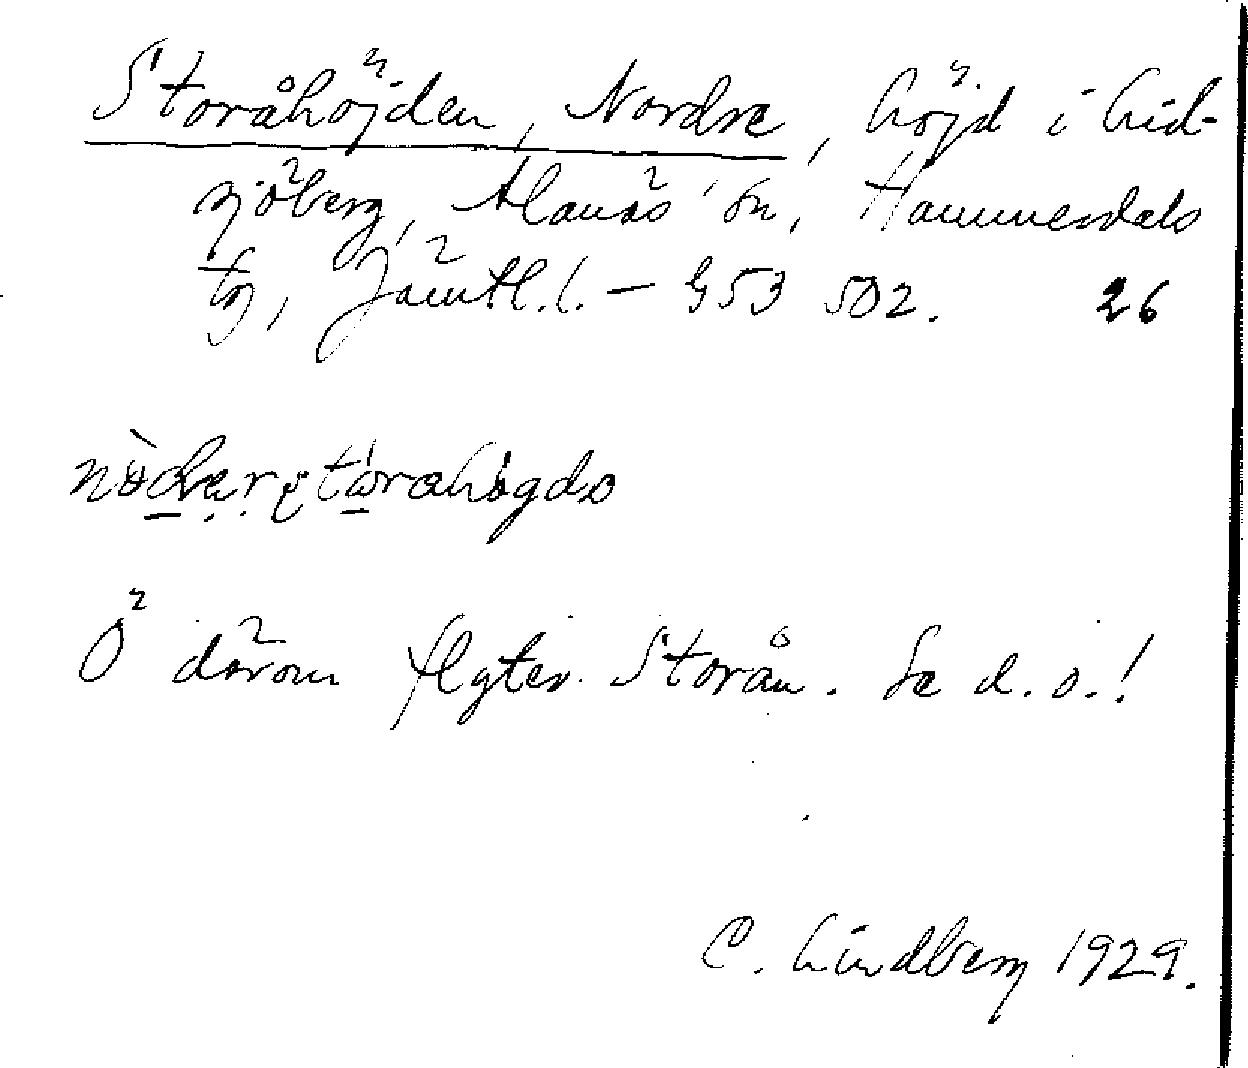 Storåhöjden, Nordre, höjd i Lid-
sjöberg, Alanäs sn, Hammerdals
tg, Jämtl. l. – G53 502. 26
Ö därom flyter Storån. Se d. o.!
C. Lindberg 1929.